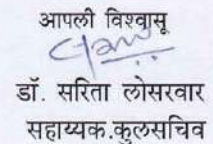 आपली विश्वासू
डॉ. सरिता लोसरवार
सहाय्यक.कुलसचिव